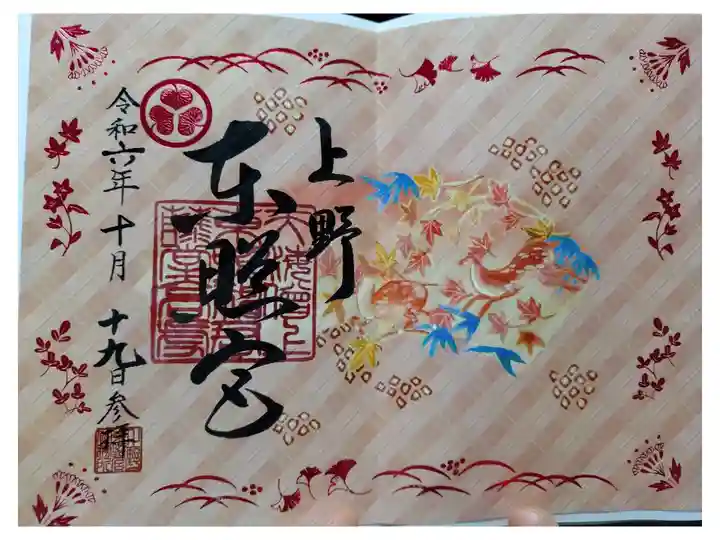 上野
東照宮
令和六年十月十九日参拝